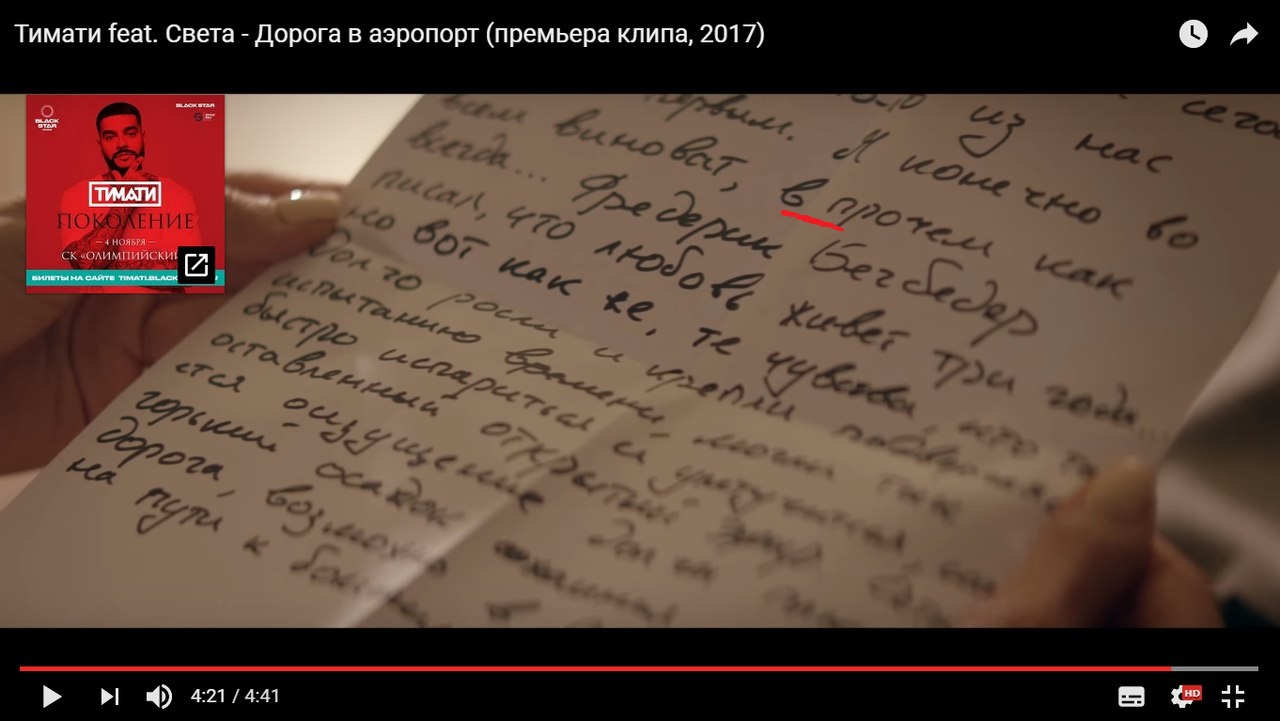 Тимати feat. Света - Дорога в аэропорт (премьера клипа, 2017)
BLACK STAR
BLACK STAR
ТИМАТИ
ПОКОЛЕНИЕ
— 4 НОЯБРЯ —
СК «ОЛИМПИЙСКИЙ
БИЛЕТЫ НА САЙТЕ TIMATI.BLACK
из нас
первым. Я конечно во
всем виноват, в прочем как
всегда... Фредерик Бегбедер
писал, что любовь живет три года...
но вот как же, те чувства, что
долго росли и крепли
испытанию времени, могли так
быстро испариться и улетучится, как
оставленный открытый эфир
ется ощущение
горький осадок
дорога, возможно
на пути к
4:21 / 4:41
HD